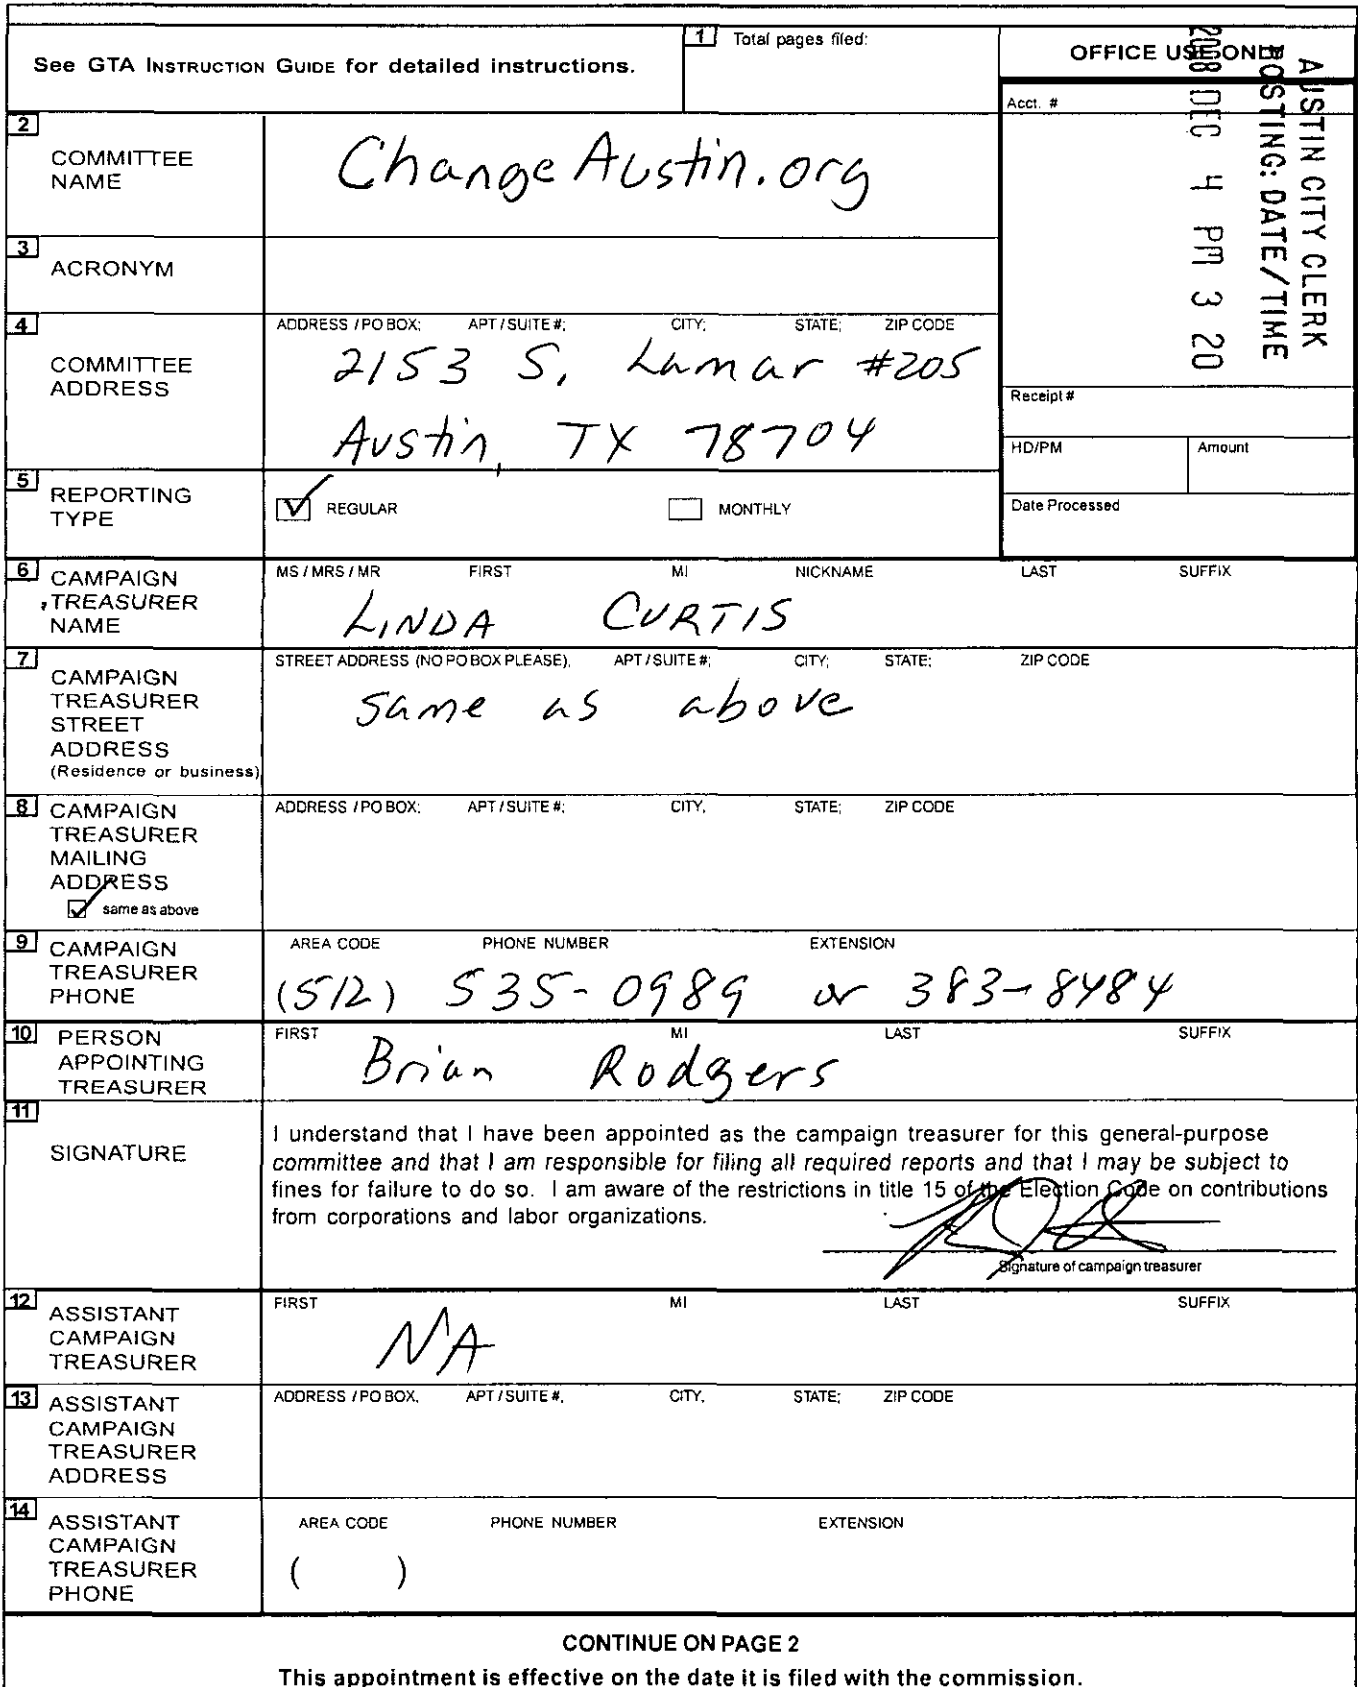 See GTA INSTRUCTION GUIDE for detailed instructions.
1 Total pages filed:
OFFICE USE ONLY
AUSTIN CITY CLERK
POSTING: DATE/TIME
2008 DEC 4 PM 3 20
Acct. #
2 COMMITTEE NAME
ChangeAustin.org
3 ACRONYM
4 COMMITTEE ADDRESS
ADDRESS / PO BOX; APT / SUITE #; CITY; STATE; ZIP CODE
2153 S. Lamar #205
Austin, TX 78704
Receipt #
HD/PM
Amount
Date Processed
5 REPORTING TYPE
REGULAR
MONTHLY
6 CAMPAIGN TREASURER NAME
MS / MRS / MR FIRST MI NICKNAME LAST SUFFIX
LINDA CURTIS
7 CAMPAIGN TREASURER STREET ADDRESS
(Residence or business)
STREET ADDRESS (NO PO BOX PLEASE), APT / SUITE #; CITY; STATE; ZIP CODE
same as above
8 CAMPAIGN TREASURER MAILING ADDRESS
same as above
ADDRESS / PO BOX; APT / SUITE #; CITY, STATE; ZIP CODE
9 CAMPAIGN TREASURER PHONE
AREA CODE PHONE NUMBER EXTENSION
(512) 535-0989 or 383-8484
10 PERSON APPOINTING TREASURER
FIRST MI LAST SUFFIX
Brian Rodgers
11 SIGNATURE
I understand that I have been appointed as the campaign treasurer for this general-purpose
committee and that I am responsible for filing all required reports and that I may be subject to
fines for failure to do so. I am aware of the restrictions in title 15 of the Election Code on contributions
from corporations and labor organizations.
Signature of campaign treasurer
12 ASSISTANT CAMPAIGN TREASURER
FIRST MI LAST SUFFIX
NA
13 ASSISTANT CAMPAIGN TREASURER ADDRESS
ADDRESS / PO BOX, APT / SUITE #, CITY, STATE; ZIP CODE
14 ASSISTANT CAMPAIGN TREASURER PHONE
AREA CODE PHONE NUMBER EXTENSION
( )
CONTINUE ON PAGE 2
This appointment is effective on the date it is filed with the commission.